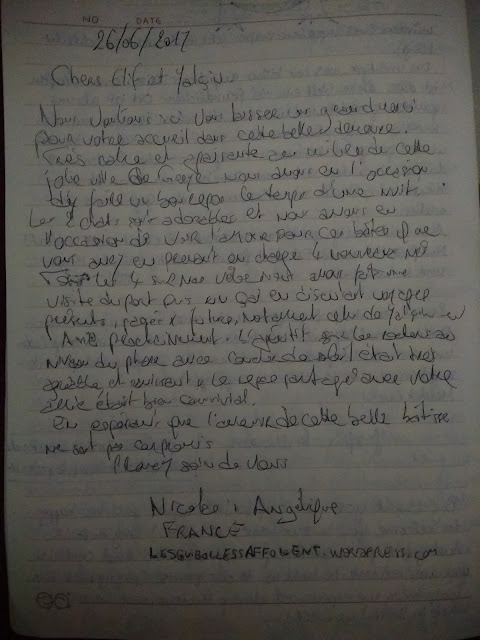 NO DATE
26/06/2017
Chers Elif et Yalçin
Nous voulions ici vous laisser un grand merci
pour votre accueil dans cette belle demeure.
Très calme et apaisante au milieu de cette
jolie ville de nous avons eu l'occasion
d'y faire un bon repos le temps d'une nuit.
Les 2 chats sont adorables et nous avons eu
l'occasion de voir l'amour pour ces bêtes que
vous avez en prenant en charge 4 nouveaux nés
Les 4 nous avons fait une
visite du port puis un en discutant voyages
présents, passés & futurs, notamment celui de Yalçin en
prochainement. L'apéritif sur les rochers au
niveau du phare avec coucher de soleil était très
agréable et enivrant, le repas partagé avec votre
amie était bien convivial.
En espérant que l'avenir de cette belle bâtisse
ne soit pas compromis
Prenez soin de vous
Nicolas, Angélique
FRANCE
LESGUIBOLLESSAFFOLENT.WORDPRESS.COM